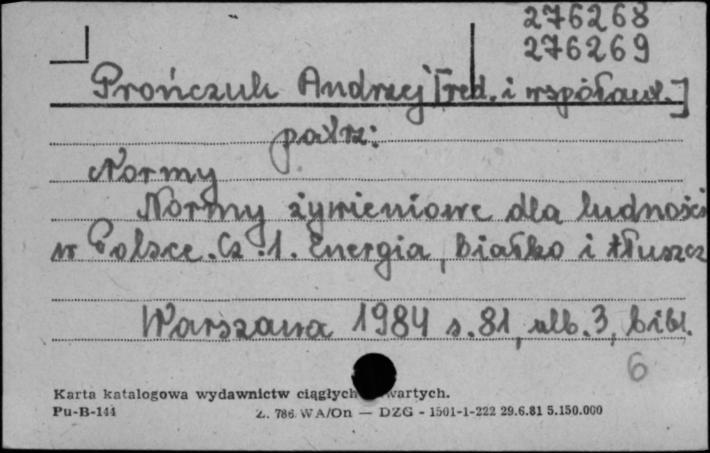 276268
276269
Prończuk Andrzej [red. i współaut.]
patrz:
Normy
Normy żywieniowe dla ludności
w Polsce. Cz. 1. Energia, białko i tłuszcz
Warszawa 1984 s. 81, nlb. 3, bibl.
6
Karta katalogowa wydawnictw ciągłych wartych.
Pu-B-144 Z. 786 WA/On — DZG - 1501-1-222 29.6.81 5.150.000